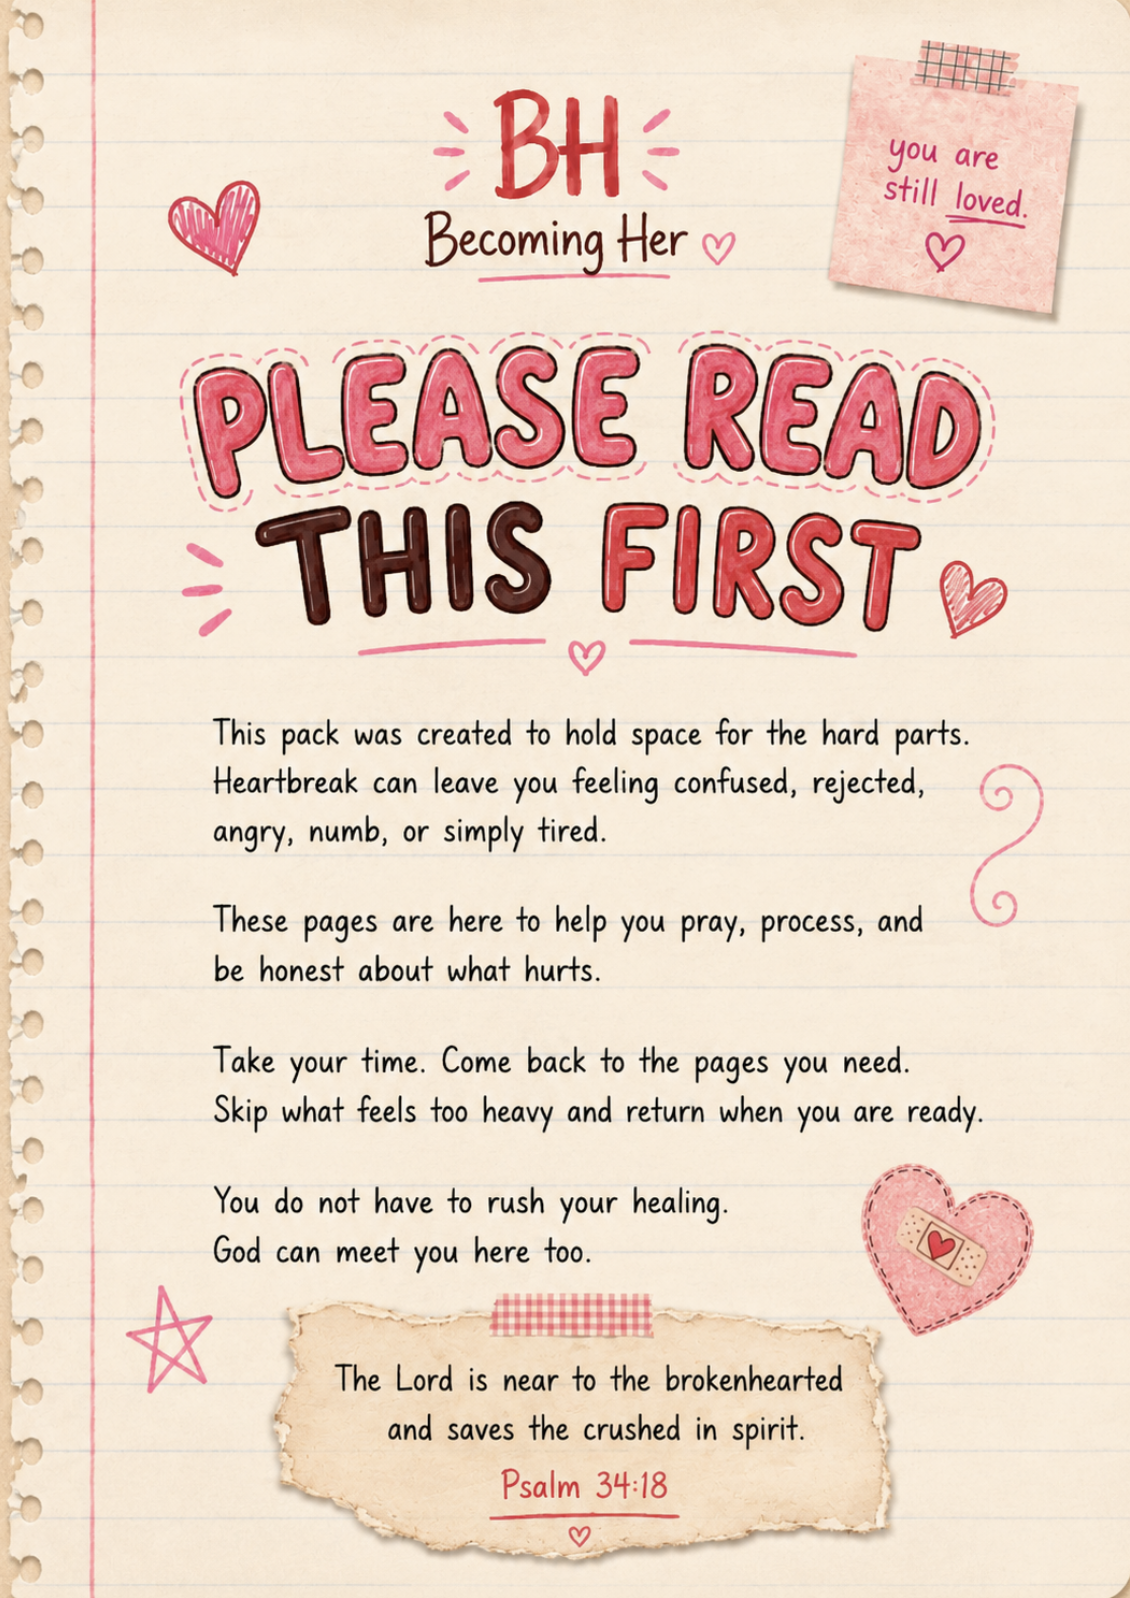 BH
Becoming Her
you are
still loved.
PLEASE READ
THIS FIRST
This pack was created to hold space for the hard parts.
Heartbreak can leave you feeling confused, rejected,
angry, numb, or simply tired.
These pages are here to help you pray, process, and
be honest about what hurts.
Take your time. Come back to the pages you need.
Skip what feels too heavy and return when you are ready.
You do not have to rush your healing.
God can meet you here too.
The Lord is near to the brokenhearted
and saves the crushed in spirit.
Psalm 34:18